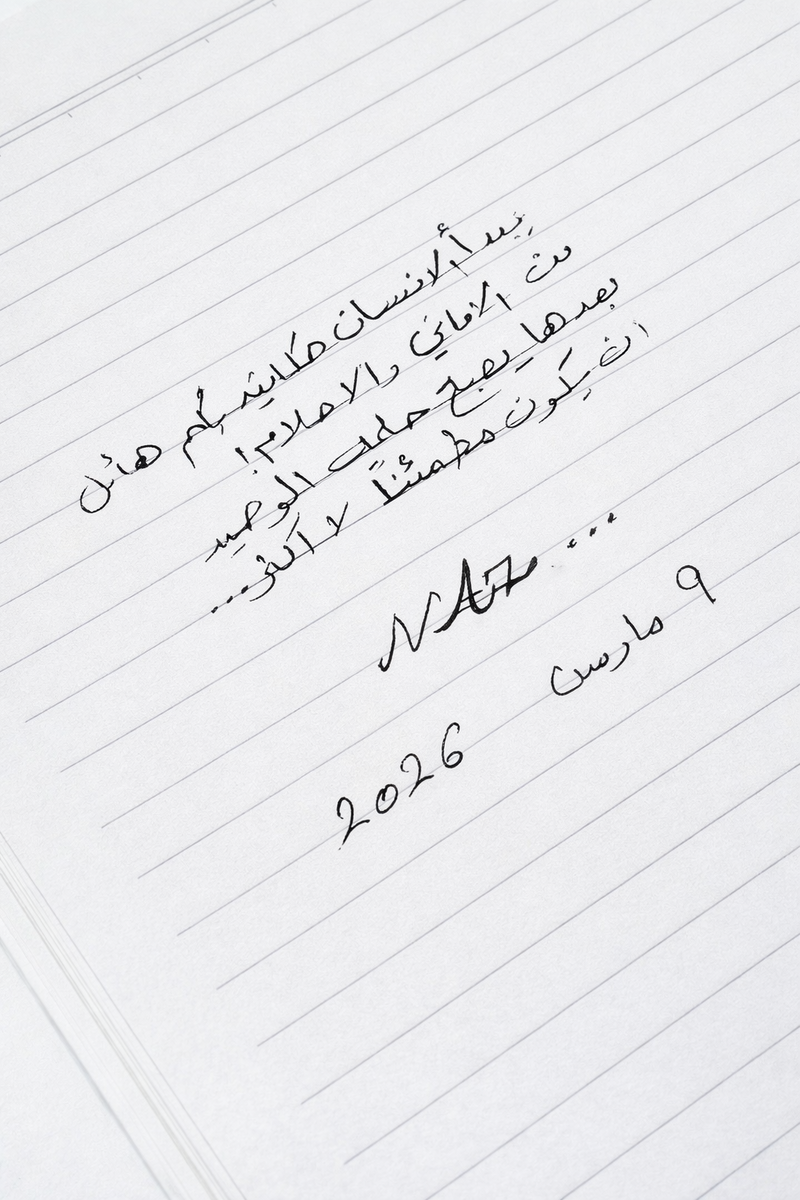 يبدأ الانسان حكايته بكم هائل
من الاماني والاحلام!
بعدها يصبح حلمه الوحيد
ان يكون مطمئناً لا اكثر...
NAZ ...
9 مارس
2026